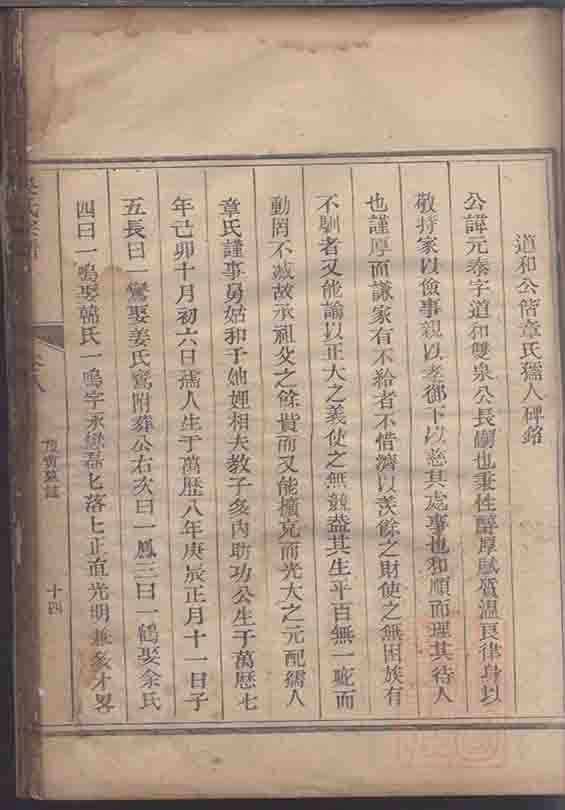 道和公偕章氏孺人碑銘
公諱元泰字道和雙泉公長嗣也秉性醇厚賦質温良律身以
敬持家以儉事親以孝御下以慈其處事也和順而理其待人
也謹厚而謙家有不給者不惜濟以羨餘之財使之無困族有
不馴者又能諭以正大之義使之無競蓋其生平百無一疵而
動罔不臧故承祖父之餘貲而又能擴充而光大之元配孺人
章氏謹事舅姑和于妯娌相夫教子多内助功公生于萬歷七
年己卯十月初六日孺人生于萬歷八年庚辰正月十一日子
五長曰一鸞娶姜氏鸞附葬公右次曰一鳳三曰一鶴娶余氏
四曰一鳴娶韓氏一鳴字永懋磊匕落匕正直光明兼多才畧
十四